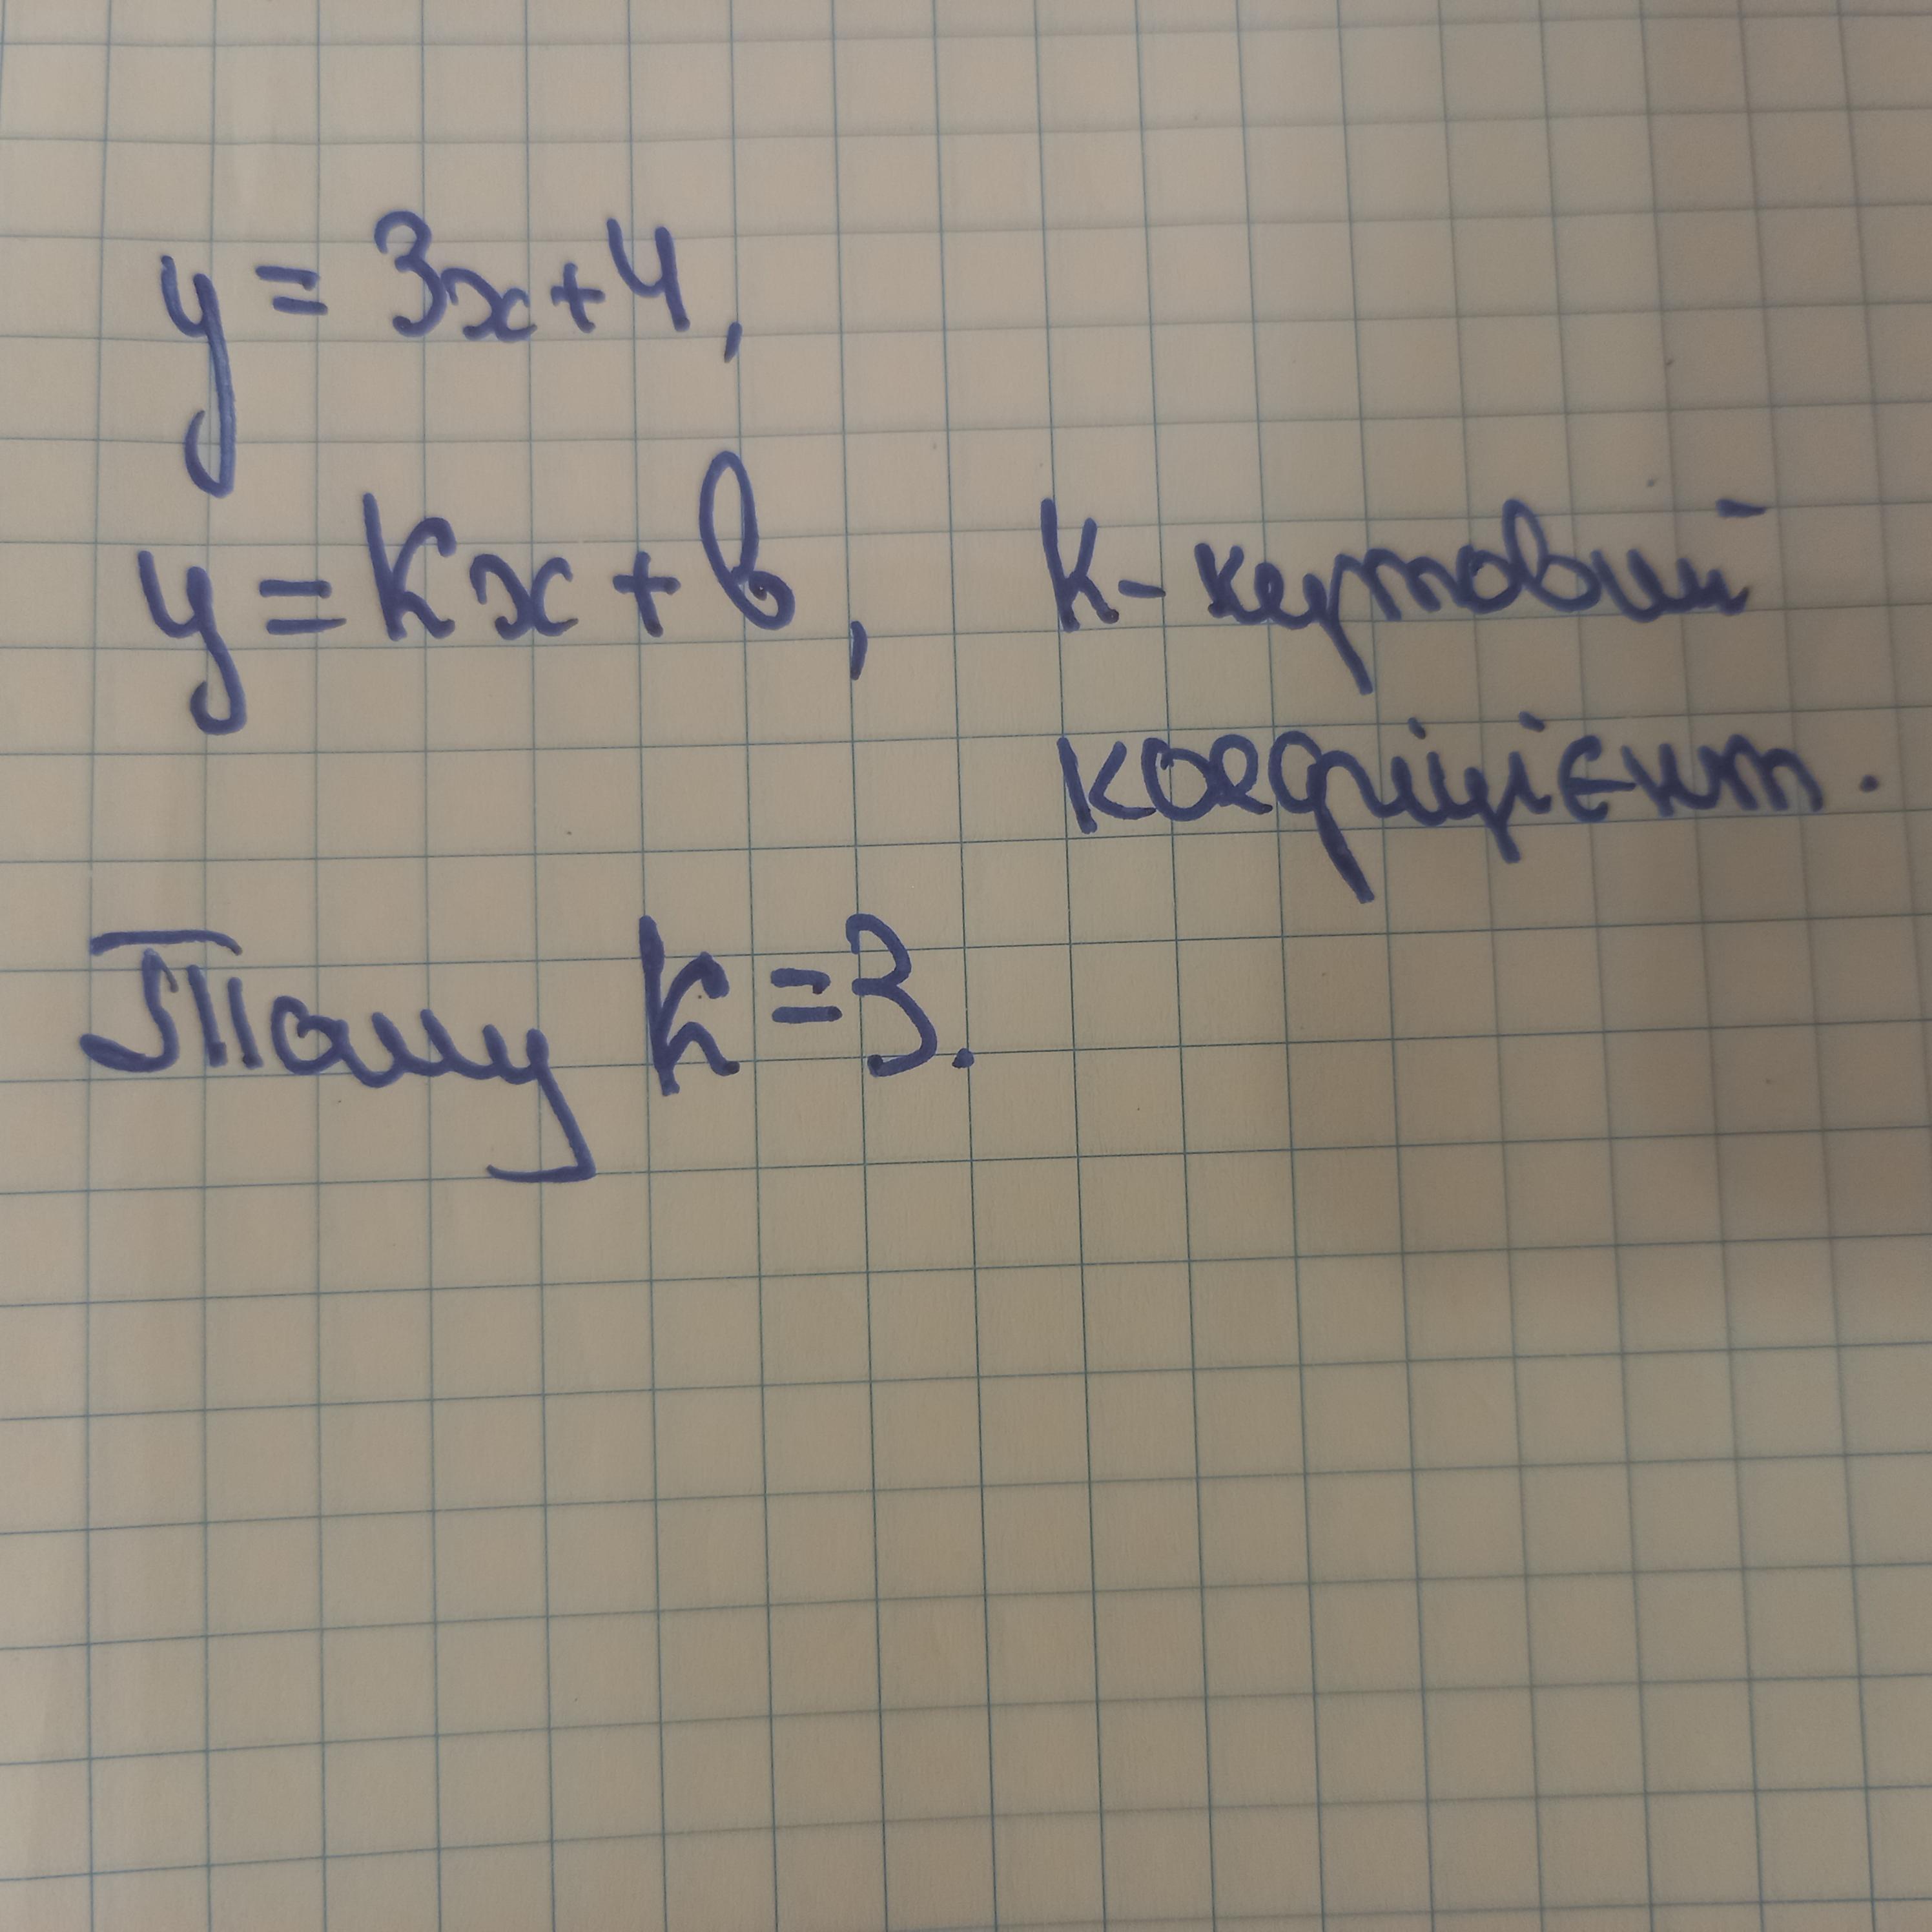 y = 3x+4,
y = kx + b, k - кутовий
коефіцієнт.
Тому k = 3.